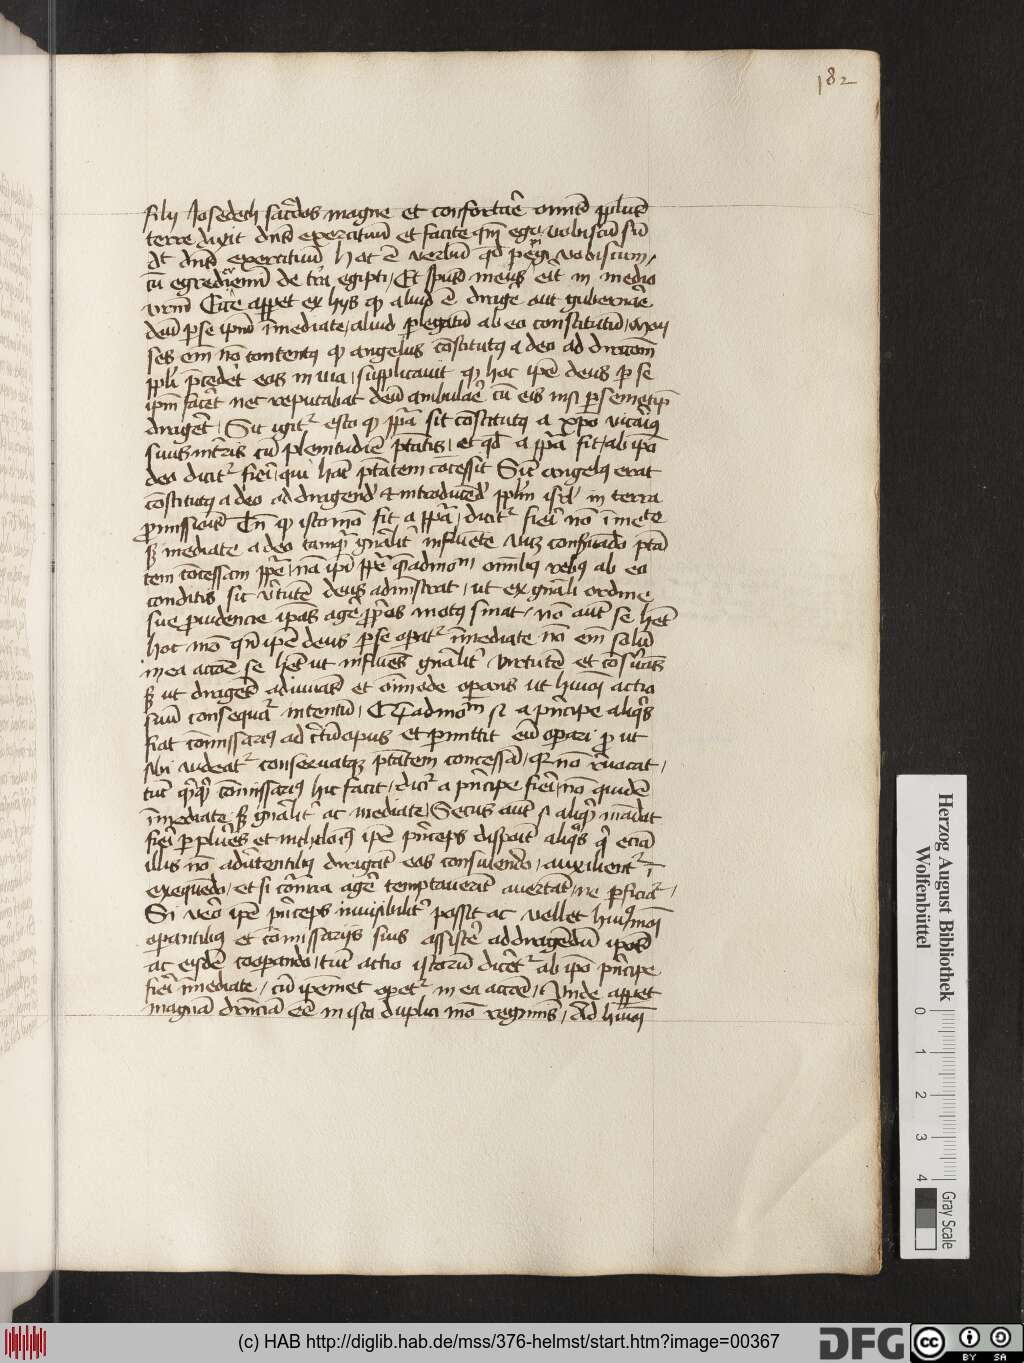 182
filij Josedech sacerdos magne et confortare omnis populus
terre dixit dominus exercituum et facite quoniam ego vobiscum sum
dicit dominus exercituum hoc est verbum quod pepigi vobiscum
cum egrederemini de terra egipti Et spiritus meus erit in medio
vestrum Certe apparet ex hijs quod aliud est dirigere aut gubernare
deum per se ipsum immediate aliud per legatum ab eo constitutum moy
ses enim non contentus quod angelus constitutus a deo ad directionem
populi precederet eos in via supplicavit quod hoc ipse deus per se
ipsum faceret nec reputabat deum ambulare cum eis nisi per semetipsum
dirigeret Sic igitur esto quod papa sit constitutus a christo vicarius
suus cum plenitudine potestatis et quod a papa fit ab ipso
deo dicitur fieri qui hanc potestatem concessit Sicut angelus erat
constitutus a deo ad dirigendum et introducendum populum israel in terra
promissionis Tamen quod isto modo fit a papa dicitur fieri non immediate
sed mediate a deo tamquam generaliter influente conservando potesta
tem concessam pape nam omnibus rebus ab eo
conditis sic virtutem deus administrat ut ex generali ordine
sue providencie ipsas agere proprios motus sinat non autem se habet
hoc modo quando ipse deus per se operatur immediate non enim solum
in ea actione se habet ut influens generaliter virtutem et conservans
sed ut dirigens adiuvans et omnimode operans ut huiusmodi actio
suum consequatur intentum Quemadmodum si a principe aliquis
fiat commissarius ad certum opus et permittit eum operari prout
sibi videatur conservatque potestatem concessam quia non revocat
tunc quicquid commissarius hic facit dicitur a principe fieri non quidem
immediate sed generaliter ac mediate Secus autem si aliquid mandat
fieri per plures et nichilominus ipse princeps disponit aliquos qui eciam
illis non advertentibus dirigant eos consulendo auxilientur in
exequendo et si contraria agere temptaverint avertant ne perficiatur
Si vero ipse princeps invisibiliter possit ac vellet huiusmodi
operantibus et commissarijs suis assistere ad dirigendum ipsos
ac eisdem cooperando tunc actio istorum diceretur ab ipso principe
fieri immediate cum ipsemet operetur in ea actione Unde apparet
magnam differenciam esse in isto duplici modo regiminis Ad huiusmodi
Herzog August Bibliothek
Wolfenbüttel
0 1 2 3 4
Gray Scale
(c) HAB http://diglib.hab.de/mss/376-helmst/start.htm?image=00367
DFG
cc BY SA